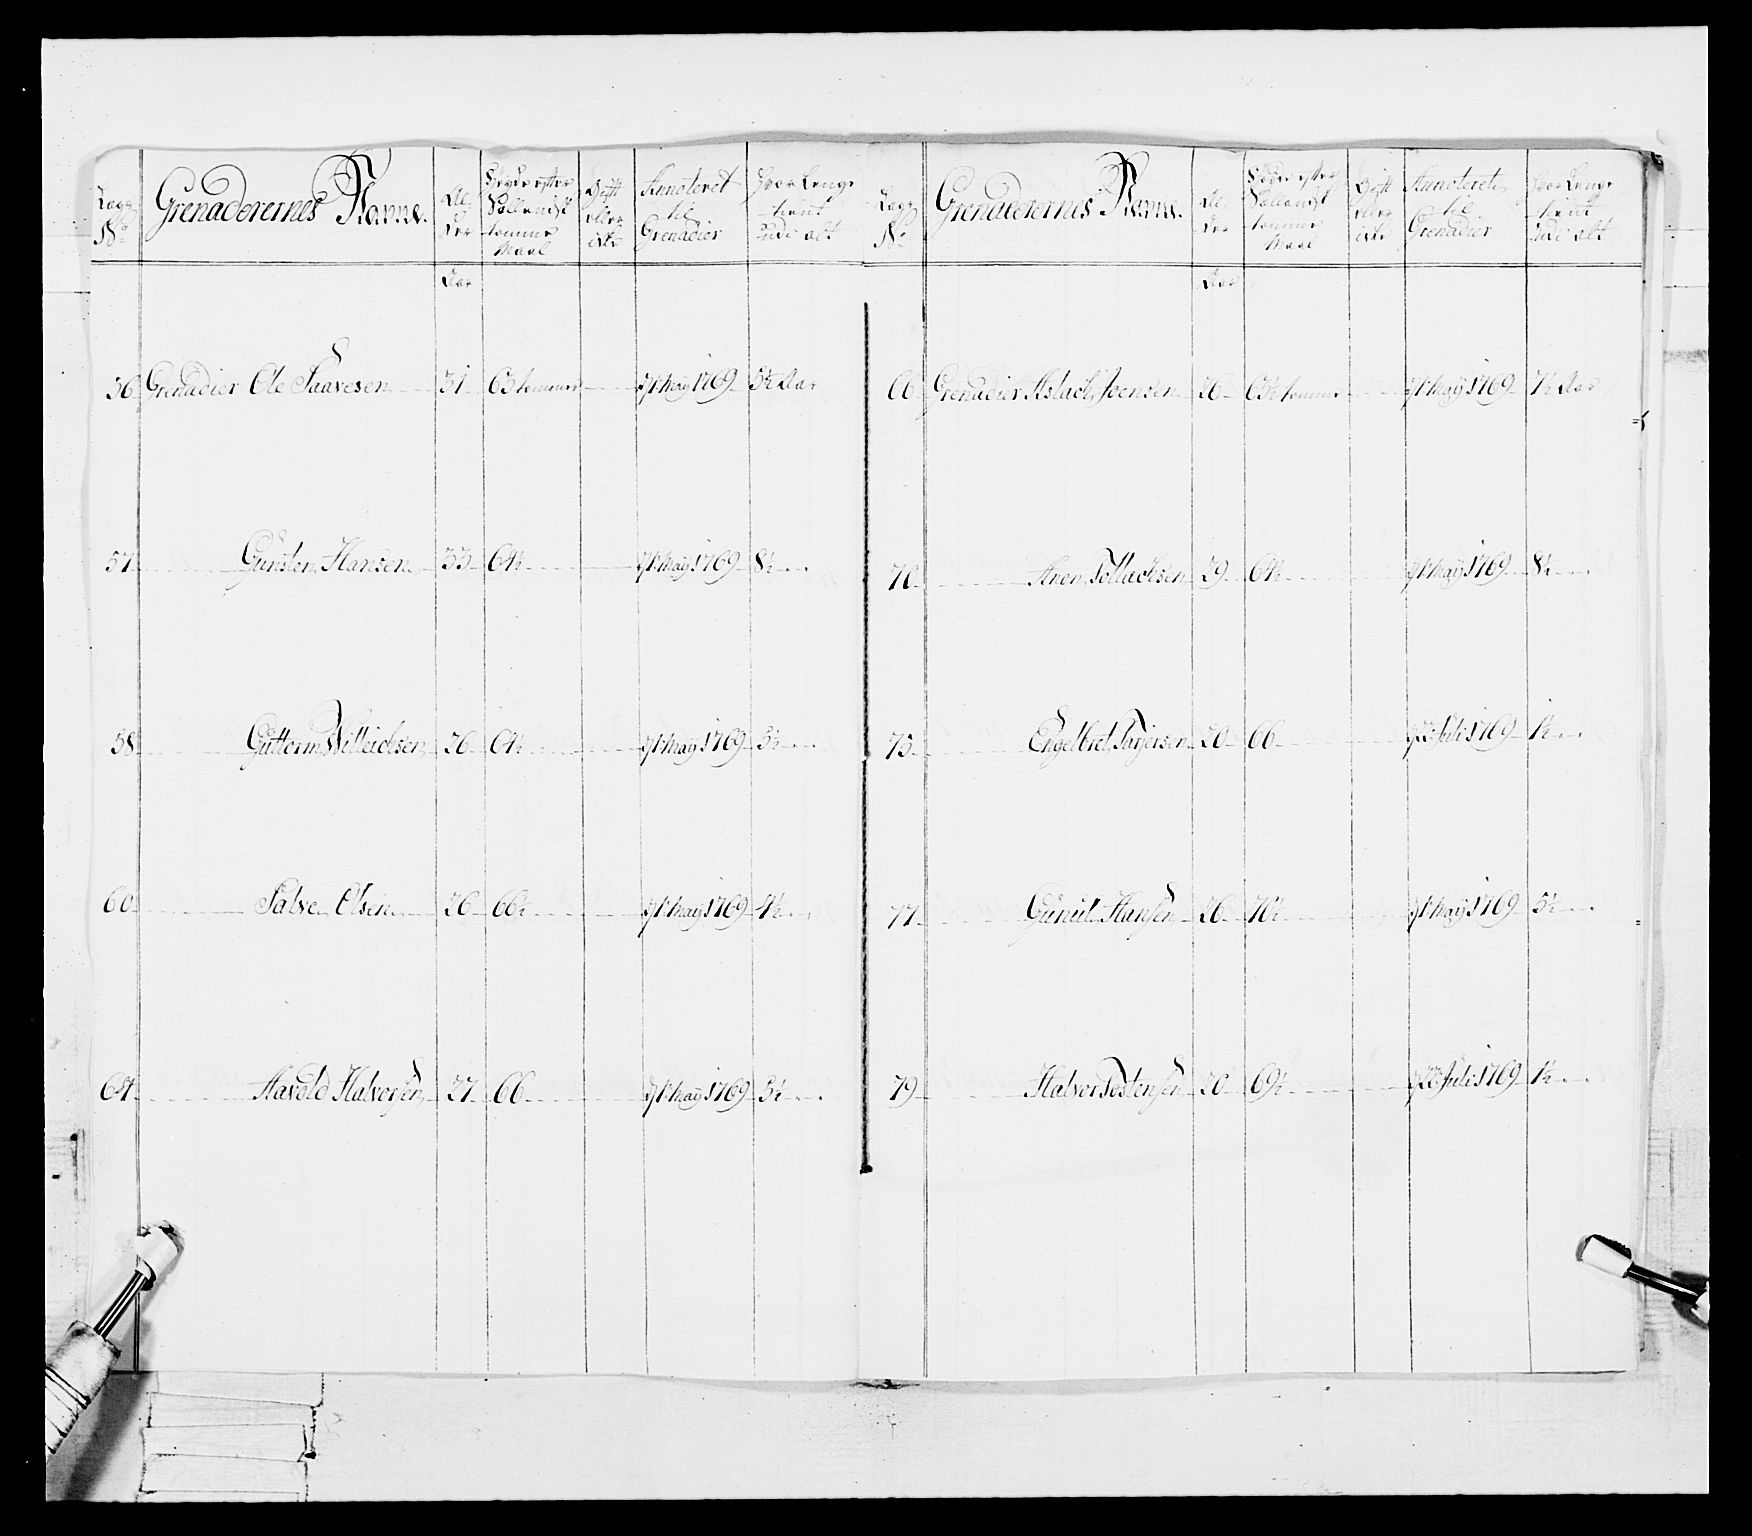 Lægs No Grenaderernes Nafne. Al- der Høyde efter Sællandsk tomme Maal Gift eller ikke Annoteret til Grenadier Hvor Lenge tient udi alt
Aar
56 Grenadier Ole Saavesen 31 63 tommer 7t May 1769 5½ Aar
57 Gunsten Hansen 33 64½ 7t May 1769 8½
58 Guttorm Willeichsen 26 64½ 7t May 1769 5½
60 Salve Olsen 26 66½ 7t May 1769 4½
64 Havold Halvorsen 27 66 7t May 1769 5½
Lægs No Grenaderernes Nafne. Al- der Høyde efter Sællandsk tomme Maal Gift eller ikke Annoteret til Grenadier Hvor Lenge tient udi alt
Aar
66 Grenadier Aslach Joensen 26 63½ tommer 7t May 1769 7½ Aar
70 Aven Tollachsen 29 64½ 7t May 1769 8½
75 Engelbret Tarjersen 20 66 Juli 1769 1½
77 Gunuld Hansen 26 70½ 7t May 1769 5½
79 Halvor Tostensen 20 69½ Juli 1769 1½